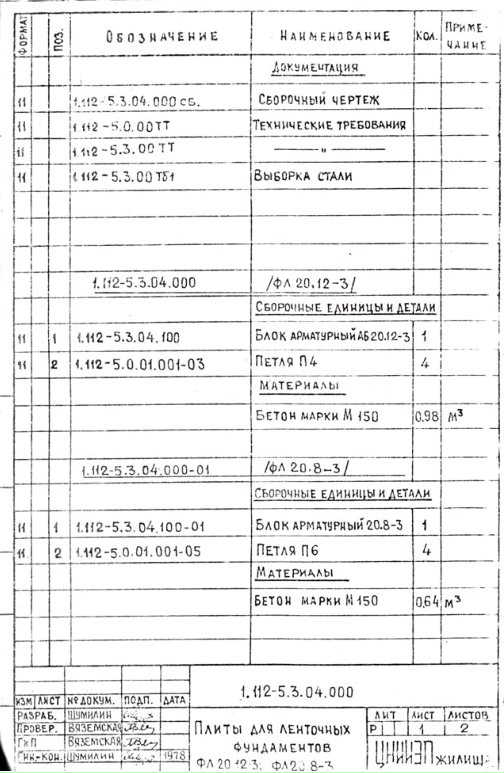 ФОРМАТ ПОЗ. ОБОЗНАЧЕНИЕ НАИМЕНОВАНИЕ КОЛ. ПРИМЕ-
ЧАНИЕ
ДОКУМЕНТАЦИЯ
11 1.112-5.3.04.000 СБ. СБОРОЧНЫЙ ЧЕРТЕЖ
11 1.112-5.0.00ТТ ТЕХНИЧЕСКИЕ ТРЕБОВАНИЯ
11 1.112-5.3.00 ТТ — " —
11 1.112-5.3.00 ТБ1 ВЫБОРКА СТАЛИ
1.112-5.3.04.000 /ФЛ 20.12-3/
СБОРОЧНЫЕ ЕДИНИЦЫ И ДЕТАЛИ
11 1 1.112-5.3.04.100 БЛОК АРМАТУРНЫЙ АБ20.12-3 1
11 2 1.112-5.0.01.001-03 ПЕТЛЯ П4 4
МАТЕРИАЛЫ
БЕТОН МАРКИ М 150 0.98 М³
1.112-5.3.04.000-01 /ФЛ 20.8-3/
СБОРОЧНЫЕ ЕДИНИЦЫ И ДЕТАЛИ
11 1 1.112-5.3.04.100-01 БЛОК АРМАТУРНЫЙ 20.8-3 1
11 2 1.112-5.0.01.001-05 ПЕТЛЯ П6 4
МАТЕРИАЛЫ
БЕТОН МАРКИ М 150 0.64 М³
1.112-5.3.04.000
ИЗМ ЛИСТ № ДОКУМ. ПОДП. ДАТА
РАЗРАБ. ШУМИЛИН
ПРОВЕР. ВЯЗЕМСКАЯ
ГИП ВЯЗЕМСКАЯ
ГИН.-КОН. ШУМИЛИН 1978
ПЛИТЫ ДЛЯ ЛЕНТОЧНЫХ
ФУНДАМЕНТОВ
ФЛ 20 12-3; ФЛ20 8-3
ЛИТ ЛИСТ ЛИСТОВ
Р 1 2
ЦНИИЭП ЖИЛИЩА